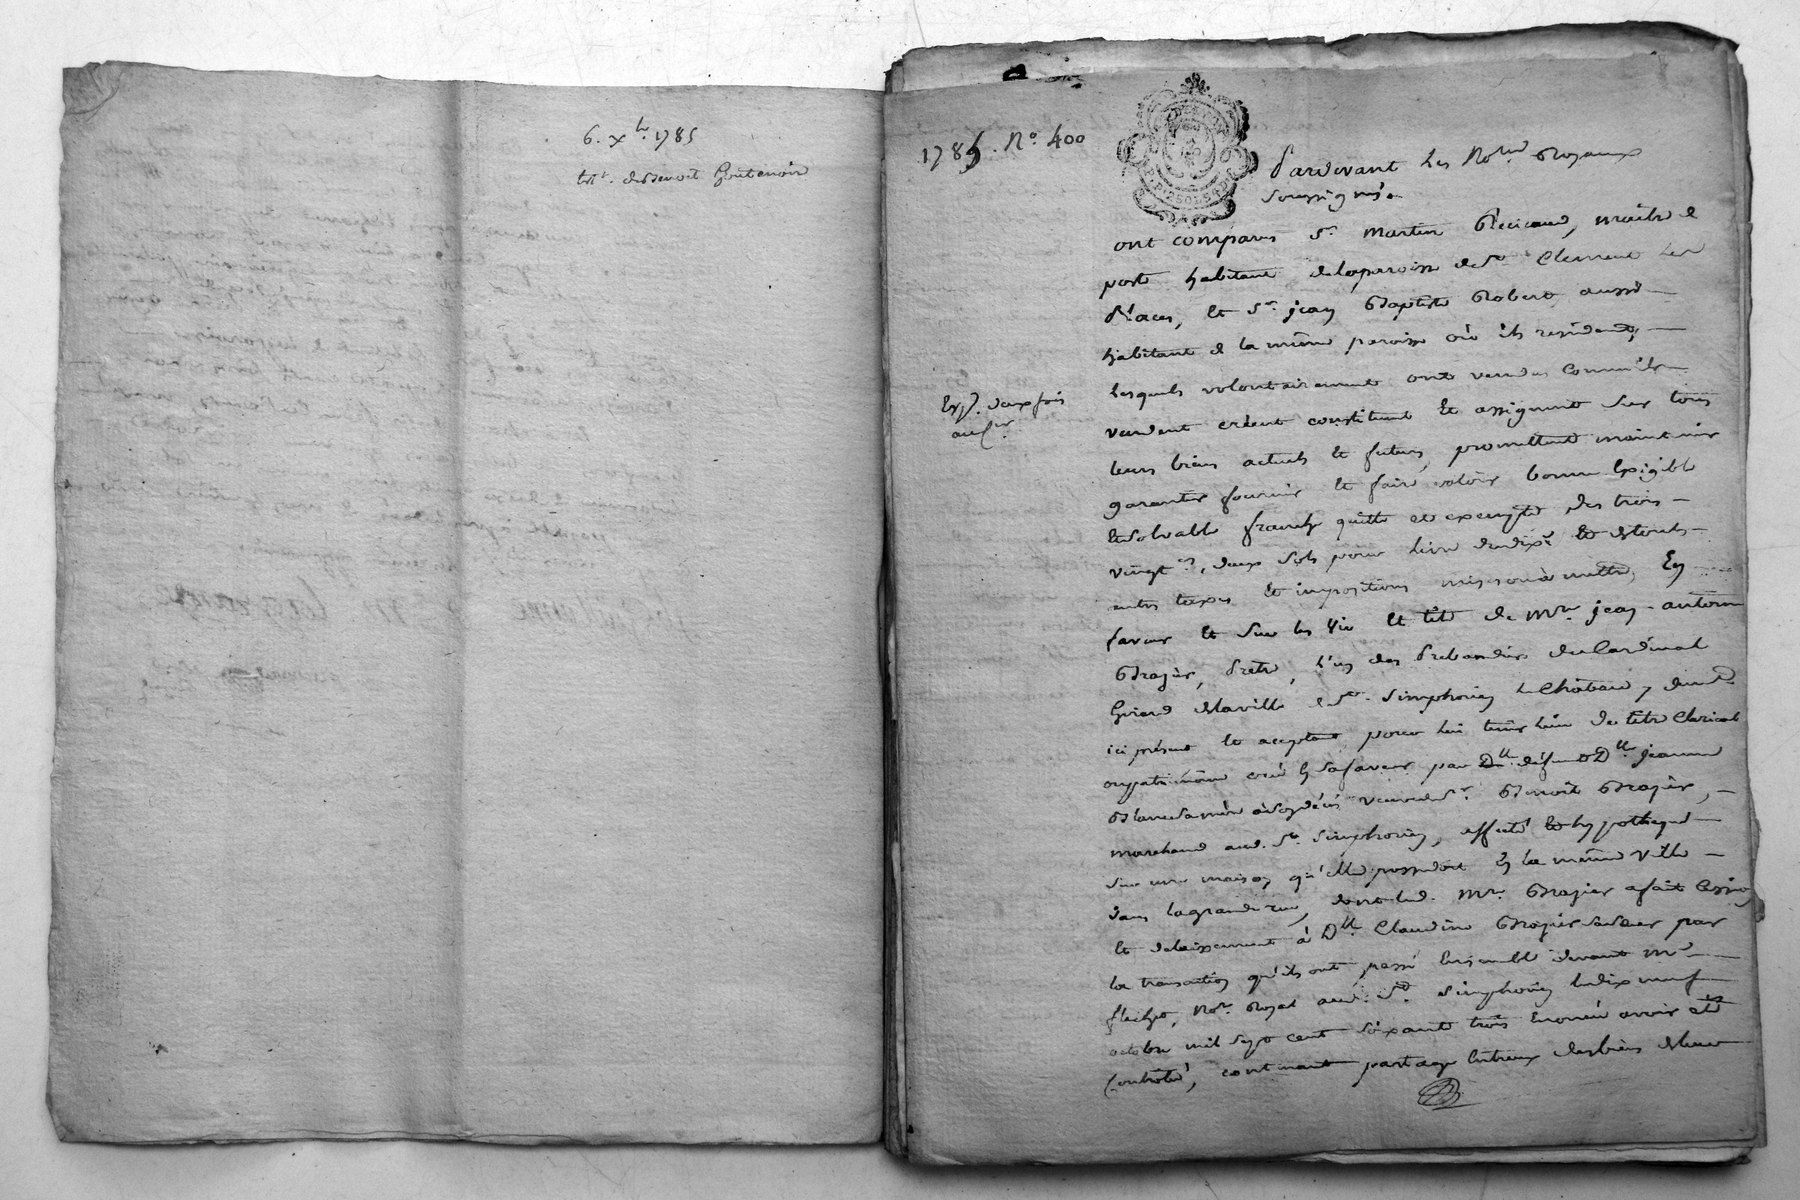 6. xbr. 1785
tt. de Benoit Goutenoir
1785. No. 400
Pardevant Les Nores Royaux
Soussignés.
ont comparus Sr. Martin Recicaud, maitre de
poste habitant delaparoisse de St. Clement Les
Places, Et Sr. jean Baptiste Robert aussi
habitant de la même paroisse où ils resident,
Lesquels volontairement ont vendu Comm'ils
Exp. deux fois
vendent créent constituent Et assignent sur tous
leurs biens actuels Et futurs, promettent maintenir
garantir fournir Et faire valoir bonne Exigible
Etsolvable franche quitte et exempte des trois
vingt.es, deux sols pour livre dudixe. Et detouts
autres taxes Et impositions mises ou à mettre, En
faveur Et sur les Vie Et tête de Mre. jean-antoine
Brazier, Pretre, L'un des Prebandiers du Cardinal
Girard delaville de St. Simphorien Le Château, y demt.
ici présent Et acceptant pour lui tenir lieu de titre Clerical
oupatrimoine créé En safaveur par Dlle. défunte Dlle. jeanne
Blanc samère àsondécès veuve de Sr. Benoit Brazier,
marchand aud. St. Simphorien, affecté Et hypothequé
sur une maison qu'elle possedoit En la même Ville
dans lagrande rue, dont led. Mre. Brazier afait Cession
Et delaissement à Dlle. Claudine Brazier sasoeur par
la transaction qu'ils ont passé Ensemble devant Me
flechet, Nore. Royal aud. St. Simphorien Ledix neuf
octobre mil sept cent soixante trois Enoncée avoir été
Controlée, contenant partage Entreux desbiens deleur